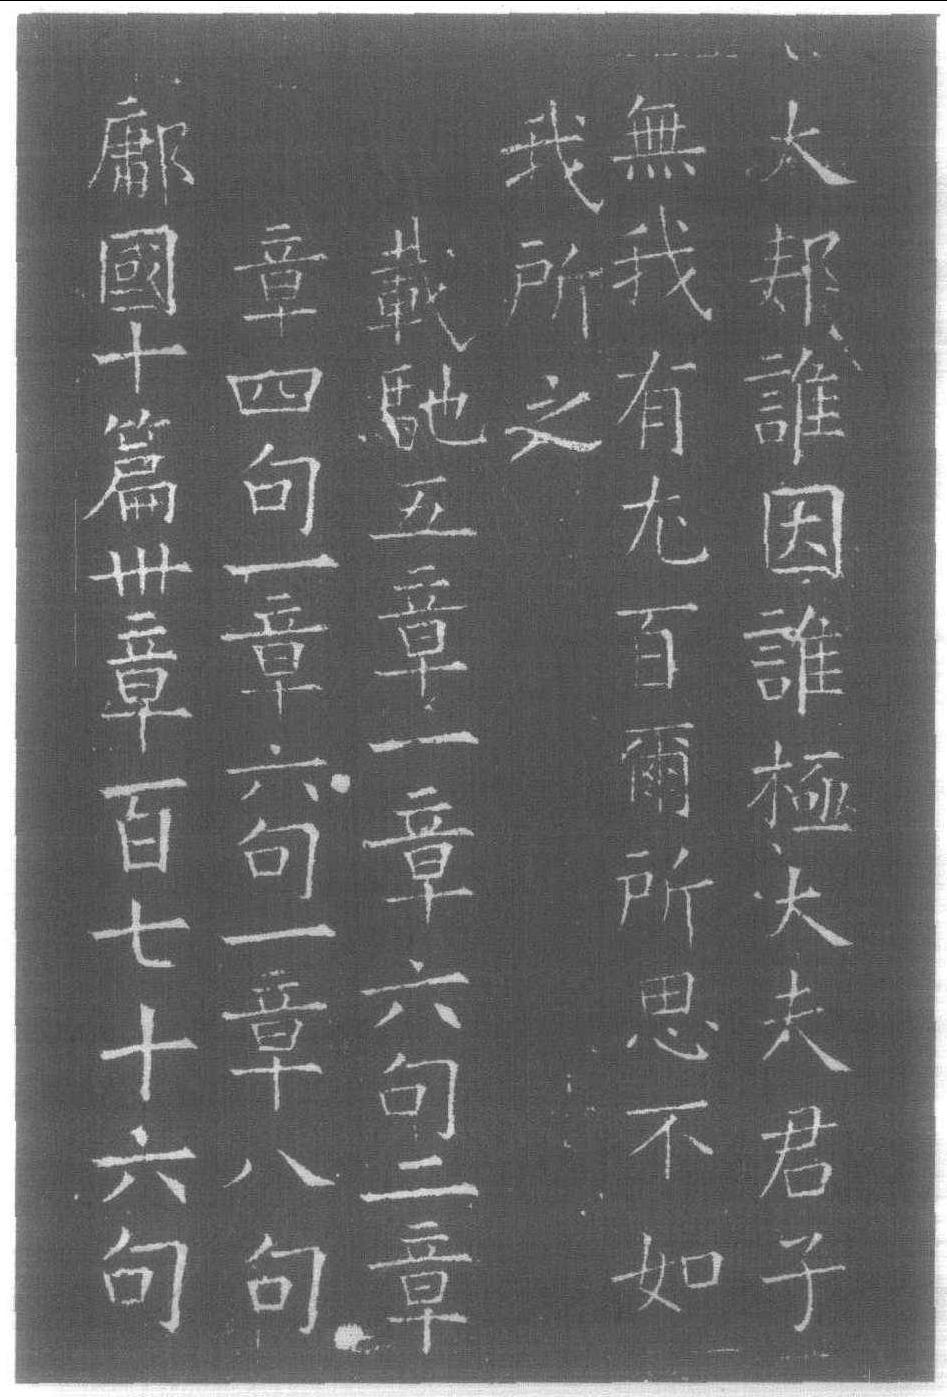 大邦誰因誰極大夫君子
無我有尤百爾所思不如
我所之
載馳五章一章六句二章
章四句一章六句一章八句
鄘國十篇卅章百七十六句